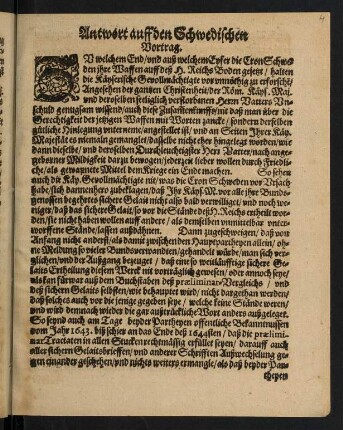 Antwort auff den Schwedischen
Vortrag.
ZU welchem End/und auß welchem Eyfer die Cron Schwe-
den jhre Waffen auff deß H. Reichs Boden gesetzt/ halten
die Käyserische Gevollmächtigte vor unnöthig zu erforschẽ/
Angesehen der gantzen Christenheit/der Röm. Käys. Maj.
und deroselben seeliglich verstorbenen Herrn Vatters Un-
schuld genugsam wissend/auch diese Zusammenkunfft nit daß man über die
Gerechtigkeit der jetzigen Waffen mit Worten zancke/ sondern derselben
gütliche Hinlegung unterneme/angestellet ist/ und an Seiten Ihrer Käy.
Majestät es niemaln gemanglet/dieselbe nicht eher hingelegt worden/wie
dann dieselbe/ und derselben Durchleuchtigster Herr Vatter/nach an-
geborner Mildigkeit darzu bewogen/jederzeit lieber wollen durch Friedli-
che/als gewapnete Mittel dem Kriege ein Ende machen. So sehen
auch die Käy. Gevollmächtigte nit/ was die Cron Schweden vor Ursach
habe/sich dannenhero zubeklagen/ daß Ihr Käys. M. vor alle jhre Bunds-
genossen begehrtes sichere Gelait nicht also bald verwilliget/ und noch we-
niger/daß das sichere Glait/so vor die Stände deß H. Reichs ertheilt wor-
den/sie nicht haben wollen auff andere/ als demselben unmittelbar unter-
worffene Stände/lassen außdähnen. Dann zugeschweigen/ daß von
Anfang nicht anderst/ als daß zwischen den Hauptpartheyen allein/ oh-
ne Meldung so vieler Bundsverwandten/gehandelt würde/man sich ver-
glichen/und der Außgang bezeuget/ daß eine so weitläuffige sichere Ge-
laits Ertheilung diesem Werck mit vorträglich gewesen/ oder annoch seye/
als kan fürwar auß dem Buchstaben deß præliminar-Vergleichs/ und
deß sichern Gelaits selbsten/wie behauptet wird/ nicht dargethan werden/
daß solches auch vor die jenige gegeben seye/ welche keine Stände weren/
und wird demnach wieder die gar außtrückliche Wort anders außgeleget.
So seynd auch am Tage beyder Partheyen öffentliche Bekanntnussen
vom Jahr 1643. biß schier an das Ende deß 1644sten/ daß die prælimi-
nar Tractaten in allen Stucken rechtmässig erfüllet seyen/ darauff auch
aller sichern Gelaitsbrieffen/und anderer Schrifften Außwechselung ge-
gen einander geschehen/und nichts weiters ermangle/als daß beyder Par-
theyen